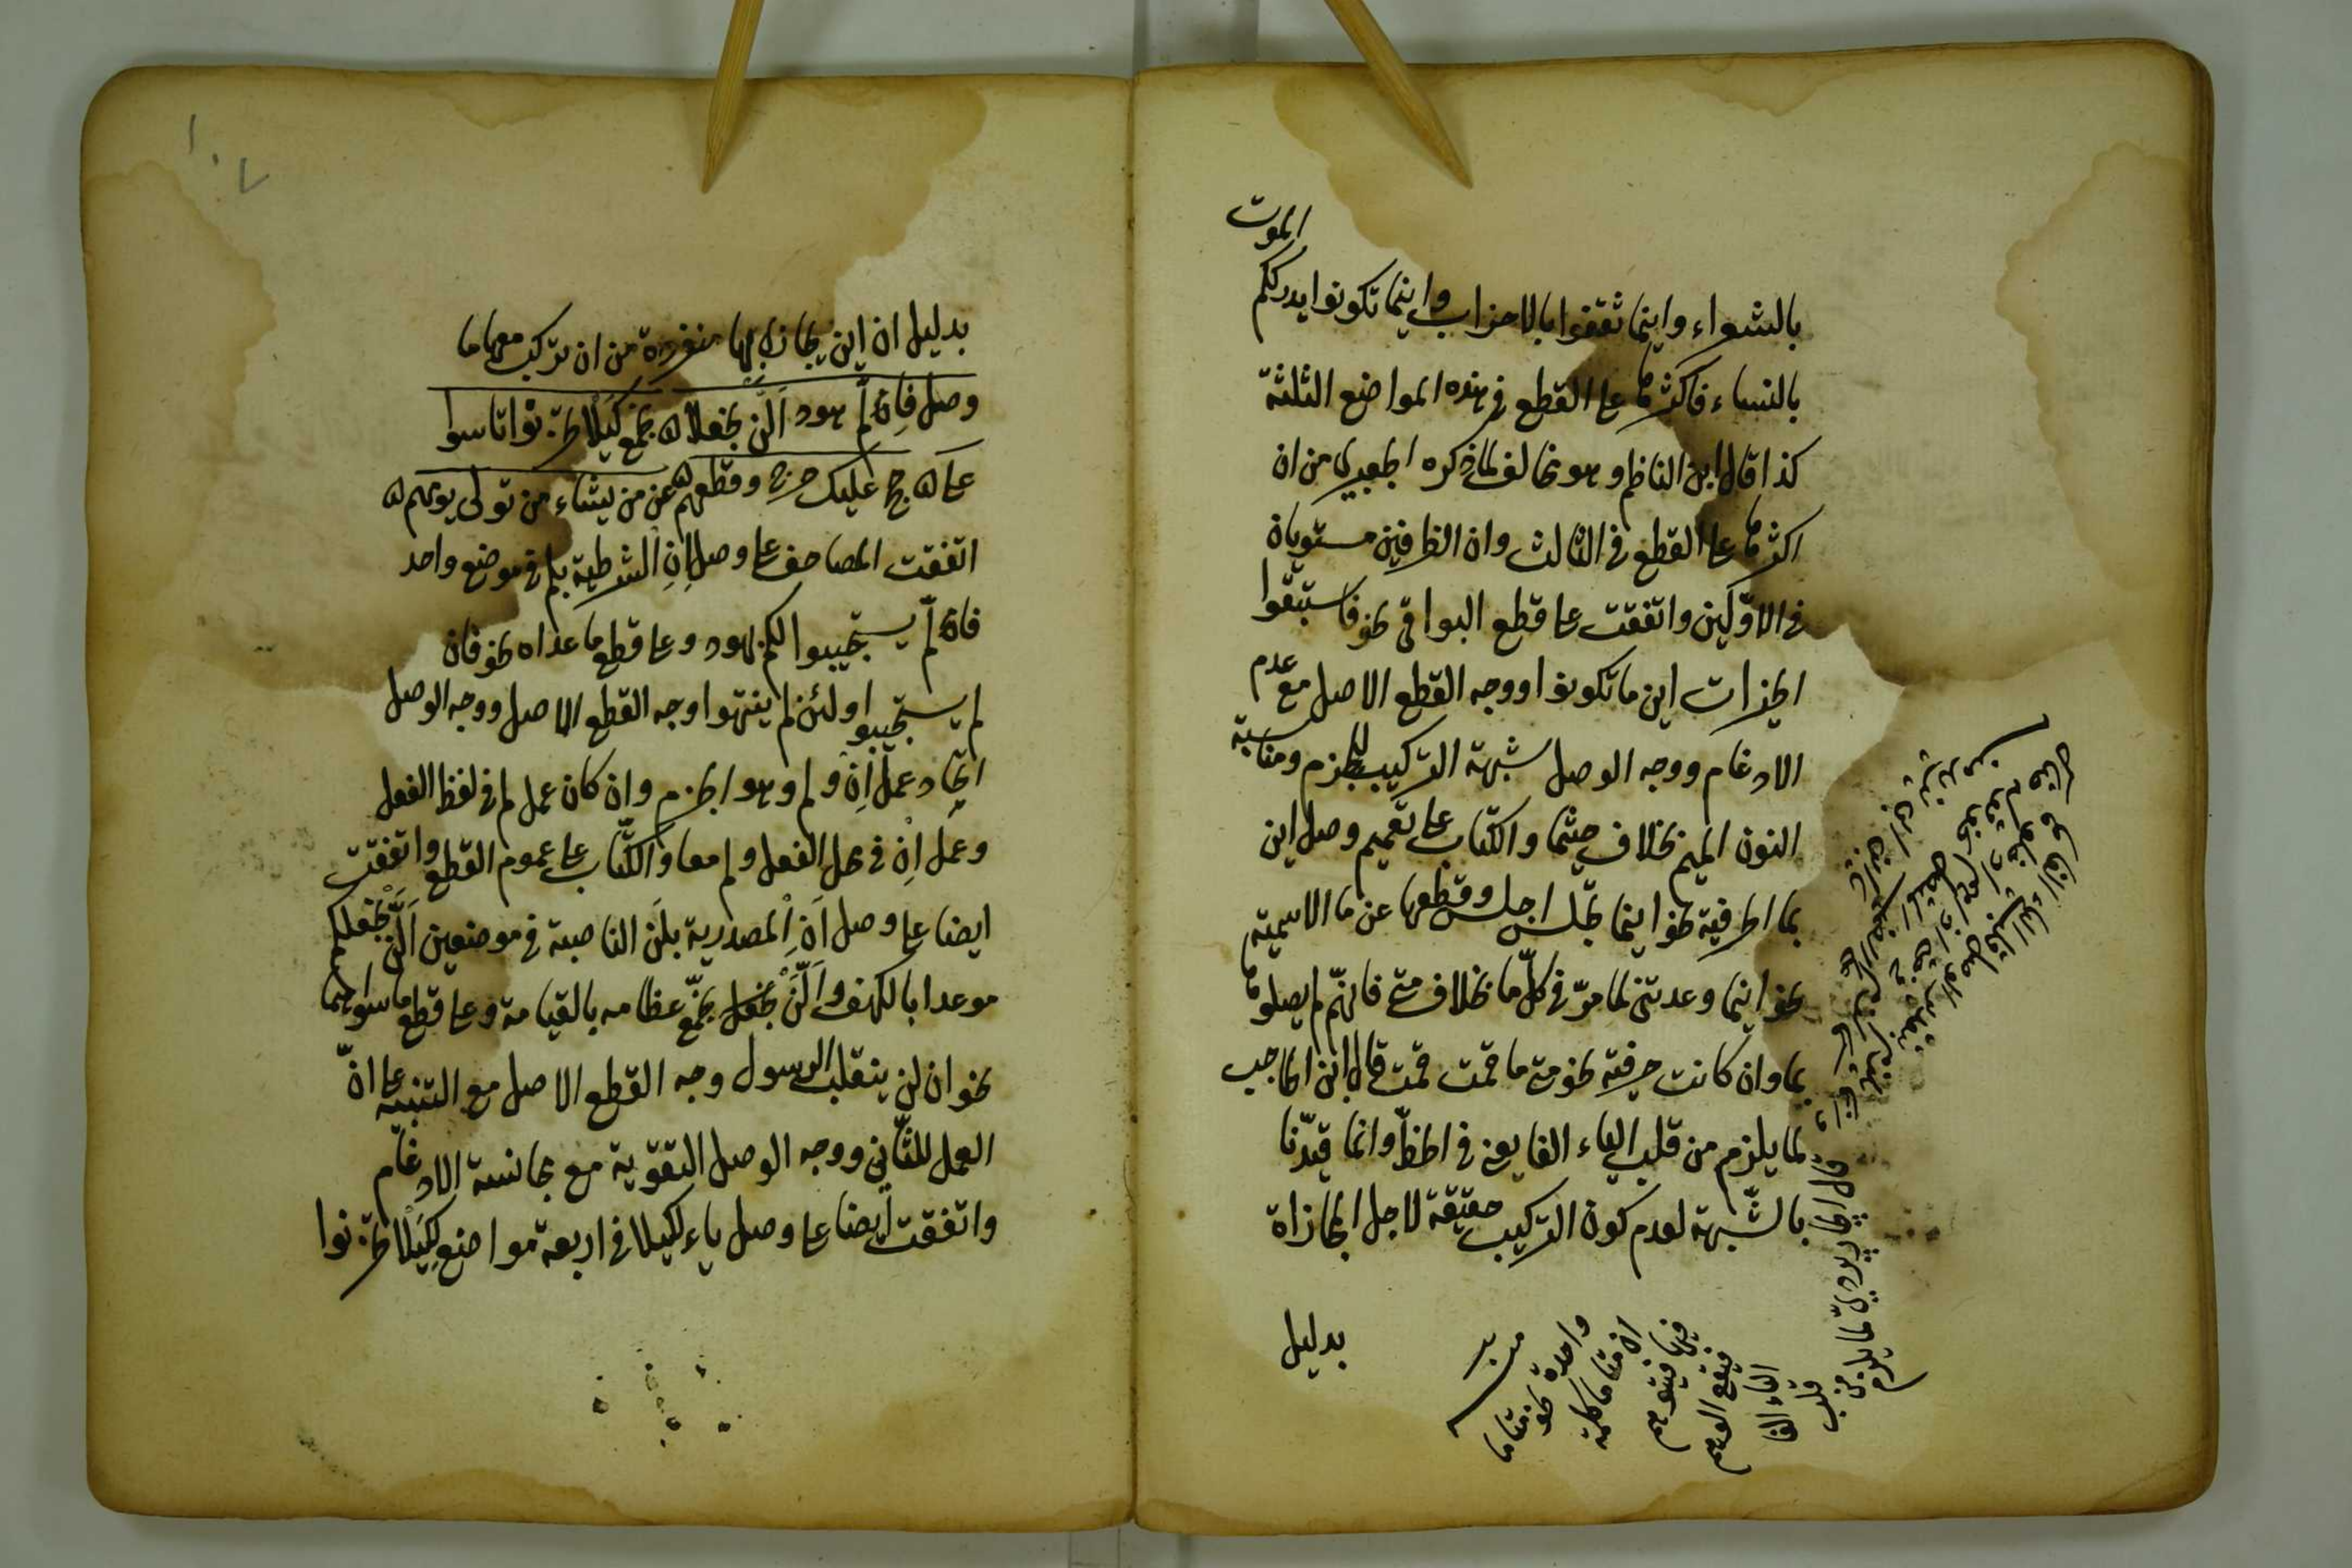 الموت
بالشعراء واينما ثقفوا بالاحزاب واينما تكونوا يدرككم
بالنساء فاكثرها على القطع في هذه المواضع الثلثة
كذا قال ابن الناظم وهو مخالف لما ذكره الجعبري من ان
اكثرها على القطع في الثالث وان الطرفين مستويان
في الاوّلين واتفقت على قطع البواقي نحو فاستبقوا
الخيرات اين ما تكونوا ووجه القطع الاصل مع عدم
الادغام ووجه الوصل شبهة التركيب للجزم ومناسبة
النون الميم بخلاف حيثما والكتّاب على تعميم وصل اين
بما الحرفية نحو اينما تجلس اجلس وقطعها عن ما الاسمية
نحو اينما وعدتني لما مرّ في كلّ ما بخلاف متى فانهم لم يصلوها
بما وان كانت حرفية نحو متى ما قمت قمت قال ابن الحاجب
لما يلزم من قلب الياء الفا يعني في الخطّ وانما قيّدنا
بالشّبهة لعدم كون التركيب حقيقة لاجل المجازاة
بدليل
قال الجاربردي لما يلزم
من
قلب
الياء الفا
فيقع الوهم
فيها فيتوهم
ان متا ما كلمة
واحدة نحو متاما
١٠٧
بدليل ان اين يجازى بها منفردة من ان تركب معها ما
وصل فالّم هود ألّن نجعلا ۵ نجمع كيلا تحزنوا تاسوا
على ۵ حج عليك حرج وقطعهم ۵ عن من يشاء من تولى يوم هم ۵
اتفقت المصاحف على وصل إن الشرطية بلم في موضع واحد
فالّم يستجيبوا لكم بهود وعلى قطع ما عداه نحو فان
لم يستجيبوا ولئن لم ينتهوا وجه القطع الاصل ووجه الوصل
اتحاد عمل إن ولم وهو الجزم وان كان عمل لم في لفظ الفعل
وعمل إن في محل الفعل ولم معا والكتّاب على عموم القطع واتفقت
ايضا على وصل أن المصدرية بلن الناصبة في موضعين ألّن نجعل لكم
موعدا بالكهف وألّن نجمع عظامه بالقيامة وعلى قطع ما سواهما
نحو ان لن ينقلب الرسول وجه القطع الاصل مع التنبيه على انّ
العمل للثّاني ووجه الوصل التقوية مع مجانسة الادغام
واتفقت ايضا على وصل ياء لكيلا في اربعة مواضع لكيلا تحزنوا